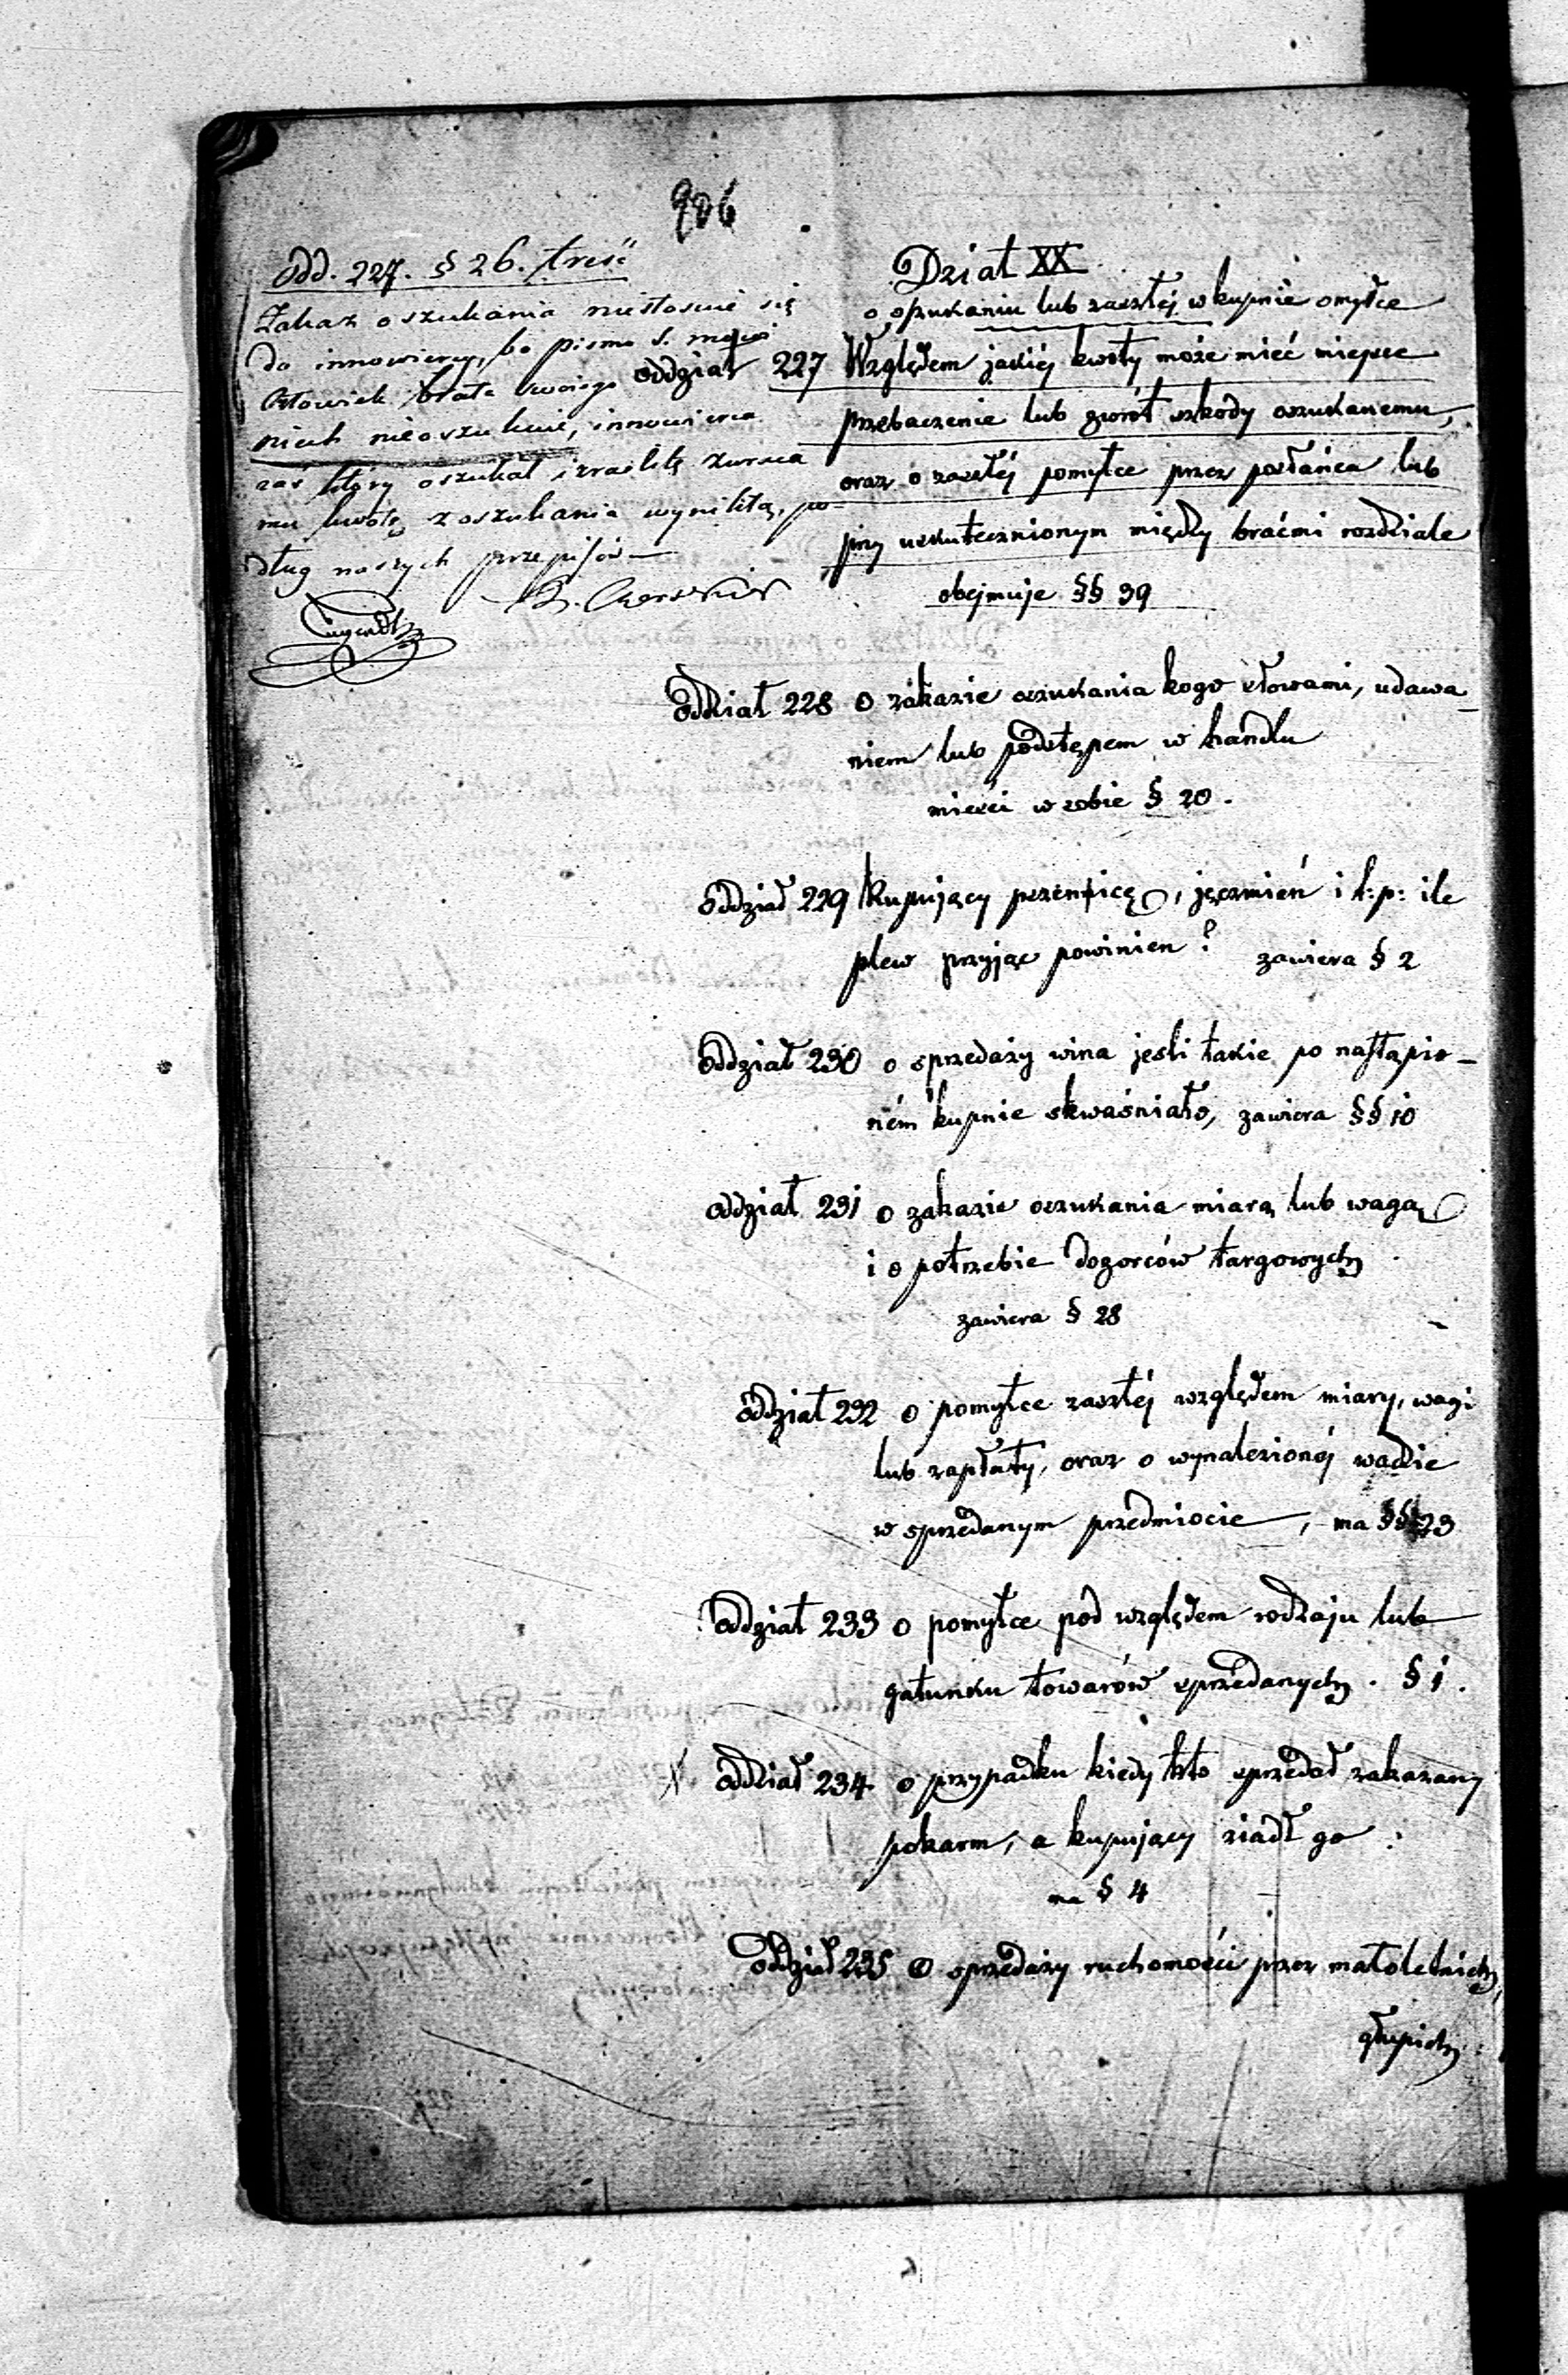 906
Odd. 227. § 26. treść
Zakaz oszukania niestosuie się
do innowiercy, bo pismo S. mówi
Człowiek brata swoiego
niech nieoszukuie, innowierca
zaś który oszukał izraelitę zwraca
mu kwotę z oszukania wynikłą, po-
dług naszych przepisów
Dział XX
o oszukaniu lub zaszłej w kupnie omyłce
oddział 227 Względem jakiéj kwoty może mieć miejsce
przebaczenie lub zwrót szkody oszukanemu,
oraz o zaszłéj pomyłce przez posłańca lub
przy uskutecznionym między braćmi rozdziale
obejmuje §§ 39
Oddział 228 o zakazie oszukania kogo słowami, udawa-
niem lub podstępem w handlu
mieści w sobie § 20.
Oddział 229 Kupujący pszenicę, jęczmień i t:p: ile
plew przyjąć powinien? zawiera § 2
Oddział 230 o sprzedaży wina jeśli takie po nastąpio-
ném kupnie skwaśniało, zawiera §§ 10
oddział 231 o zakazie oszukania miarą lub wagą
i o potrzebie dozorców targowych
zawiera § 28
oddział 232 o pomyłce zaszłéj względem miary, wagi
lub zapłaty, oraz o wynalezionéj wadzie
w sprzedanym przedmiocie, ma §§ 23
oddział 233 o pomyłce pod względem rodzaju lub
gatunku towarów sprzedanych. § 1.
Oddział 234 o przypadku kiedy kto sprzedał zakazany
pokarm, a kupujący ziadł go:
ma § 4
Oddział 235 O sprzedaży ruchomości przez małoletnich,
głupich